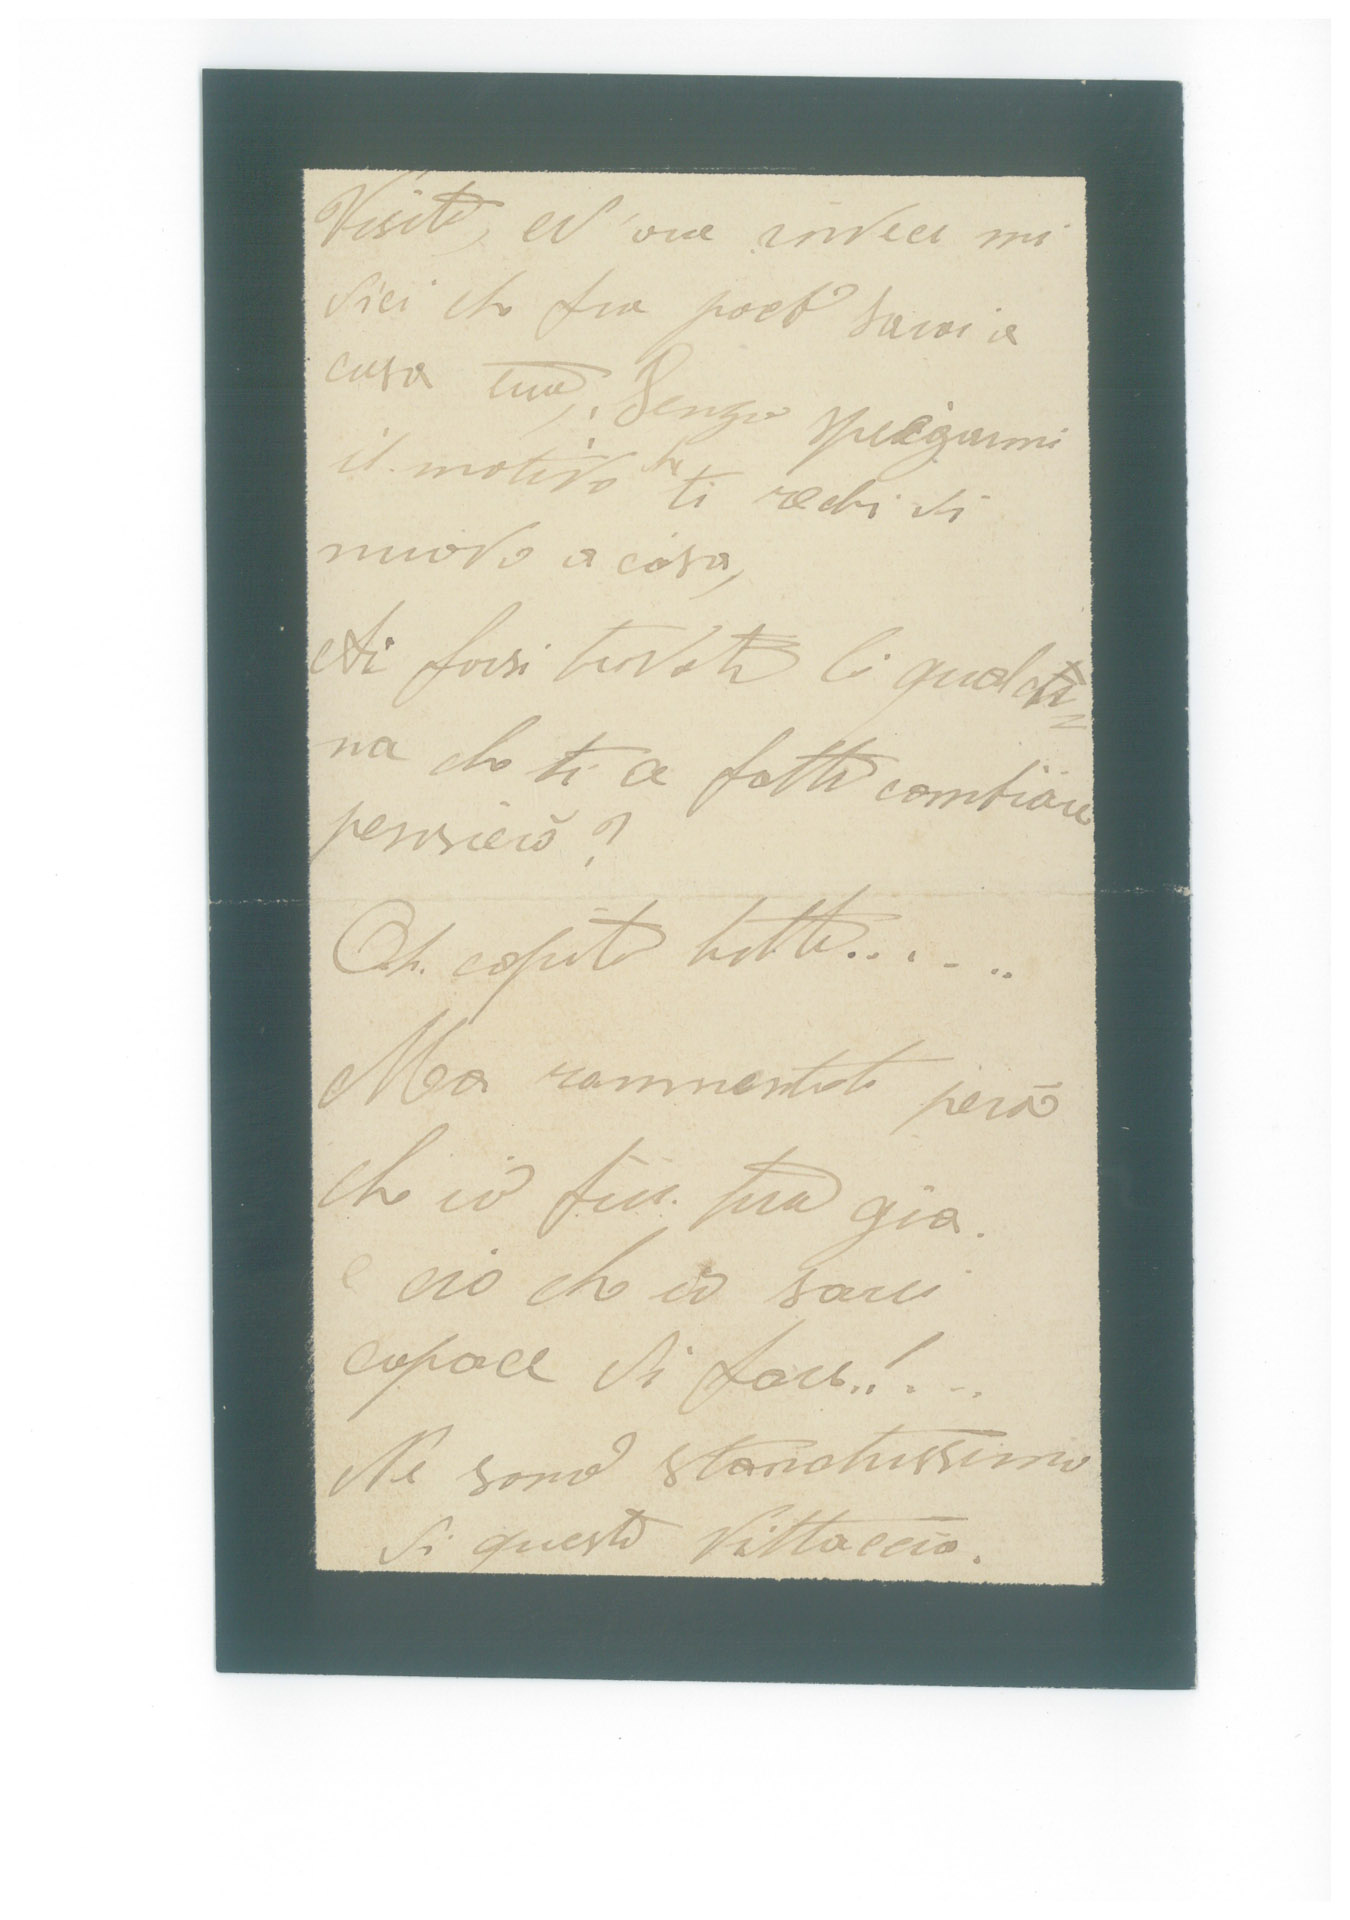 Visita, ed'ora invece mi
dici che fra poco sarai a
casa tua, Senza speigarmi
il motivo che ti rechi di
nuovo a casa,
Ai forsi trovato li qualcu=
na che ti a fatto cambiare
pensiero?
Oh. capito tutto......
Ma rammentati però
che io fui tua già.
e ciò che io sarei
capace di fare..!...
Ne sono stanchissimo
di questa Vittaccia.